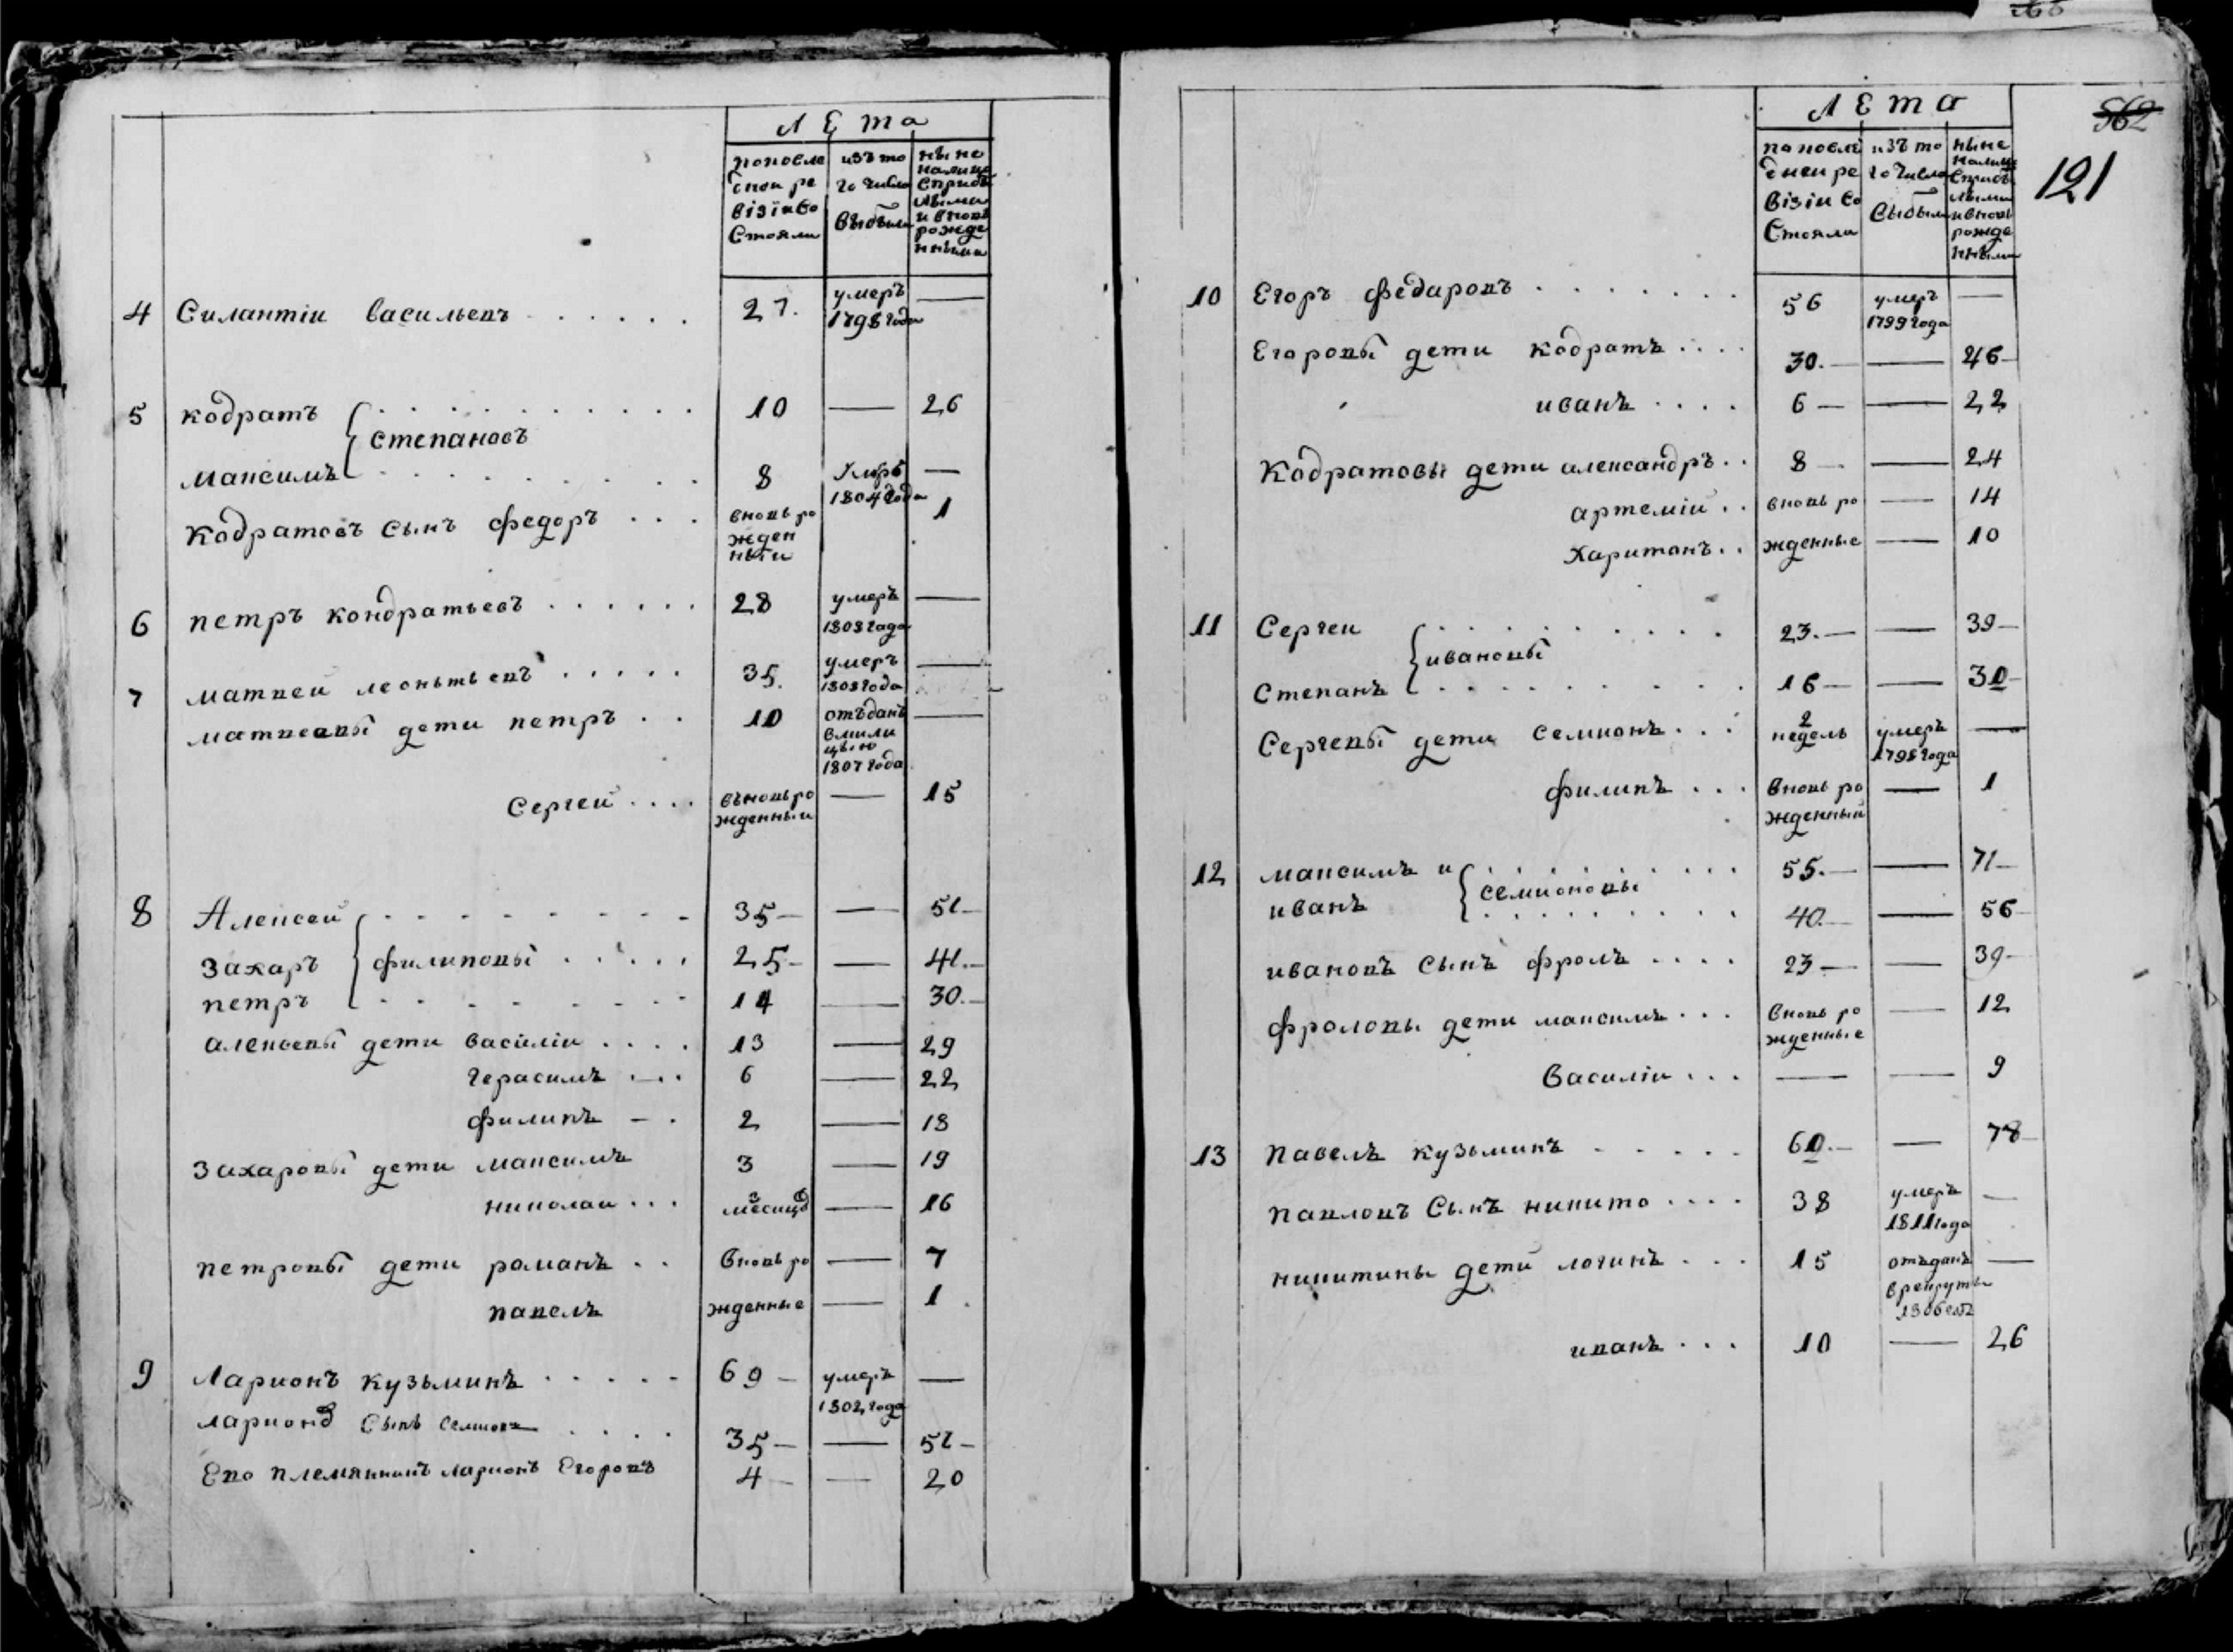 Лета
попосле изъ то ныне
днои ре го числа налице
визіи со выбыли сприбы
стояли лыми
и вновь
рожде
нными
4 Силантіи васильевъ 27. умеръ —
1798 года
5 кодратъ 10 — 26
степановъ
максимъ 8 умръ —
1804 года
кодратовъ сынъ федоръ вновь ро 1
жден
ныи
6 петръ кондратьевъ 28 умеръ —
1808 года
7 матвеи леонтьевъ 35. умеръ —
1808 года
матвеевы дети петръ 10 отъданъ —
вмили
цыю
1807 года
Сергеи въновь ро — 15
жденныи
8 Алексеи 35 — 51
захаръ филиповы 25 — 41
петръ 14 — 30
алексевы дети василіи 13 — 29
герасимъ 6 — 22
филипъ 2 — 18
захаровы дети максимъ 3 — 19
николаи 3 месицов — 16
петровы дети романъ вновь ро — 7
павелъ жденные — 1
9 Ларионъ кузьминъ 69 умеръ —
1802 года
ларионов сынъ семион 35 — 51
Ево племянникъ ларионъ Егоровъ 4 — 20
Лета
562
121
попосле изъ то ныне
днеи ре го числа налице
визіи со выбыли сприбы
стояли лыми
ивновь
рожде
нными
10 Егоръ федаровъ 56 умеръ —
1799 года
Егоровы дети кодратъ 30. — 46
иванъ 6 — 22
Кодратовы дети александръ 8 — 24
артеміи вновь ро — 14
харитонъ жденные — 10
11 Сергеи 23. — 39
ивановы
Степанъ 16 — 30
Сергевы дети семионъ 2 недель умеръ —
1798 года
филипъ вновь ро — 1
жденный
12 максимъ и 55. — 71
семионовы
иванъ 40. — 56
ивановъ сынъ фролъ 23 — 39
фроловы дети максимъ вновь ро — 12
жденные
василіи — — 9
13 павелъ кузьминъ 60. — 78
павловъ сынъ никита 38 умеръ —
1811 года
никитины дети логинъ 15 отъданъ —
врекруты
1806 го
иванъ 10 — 26